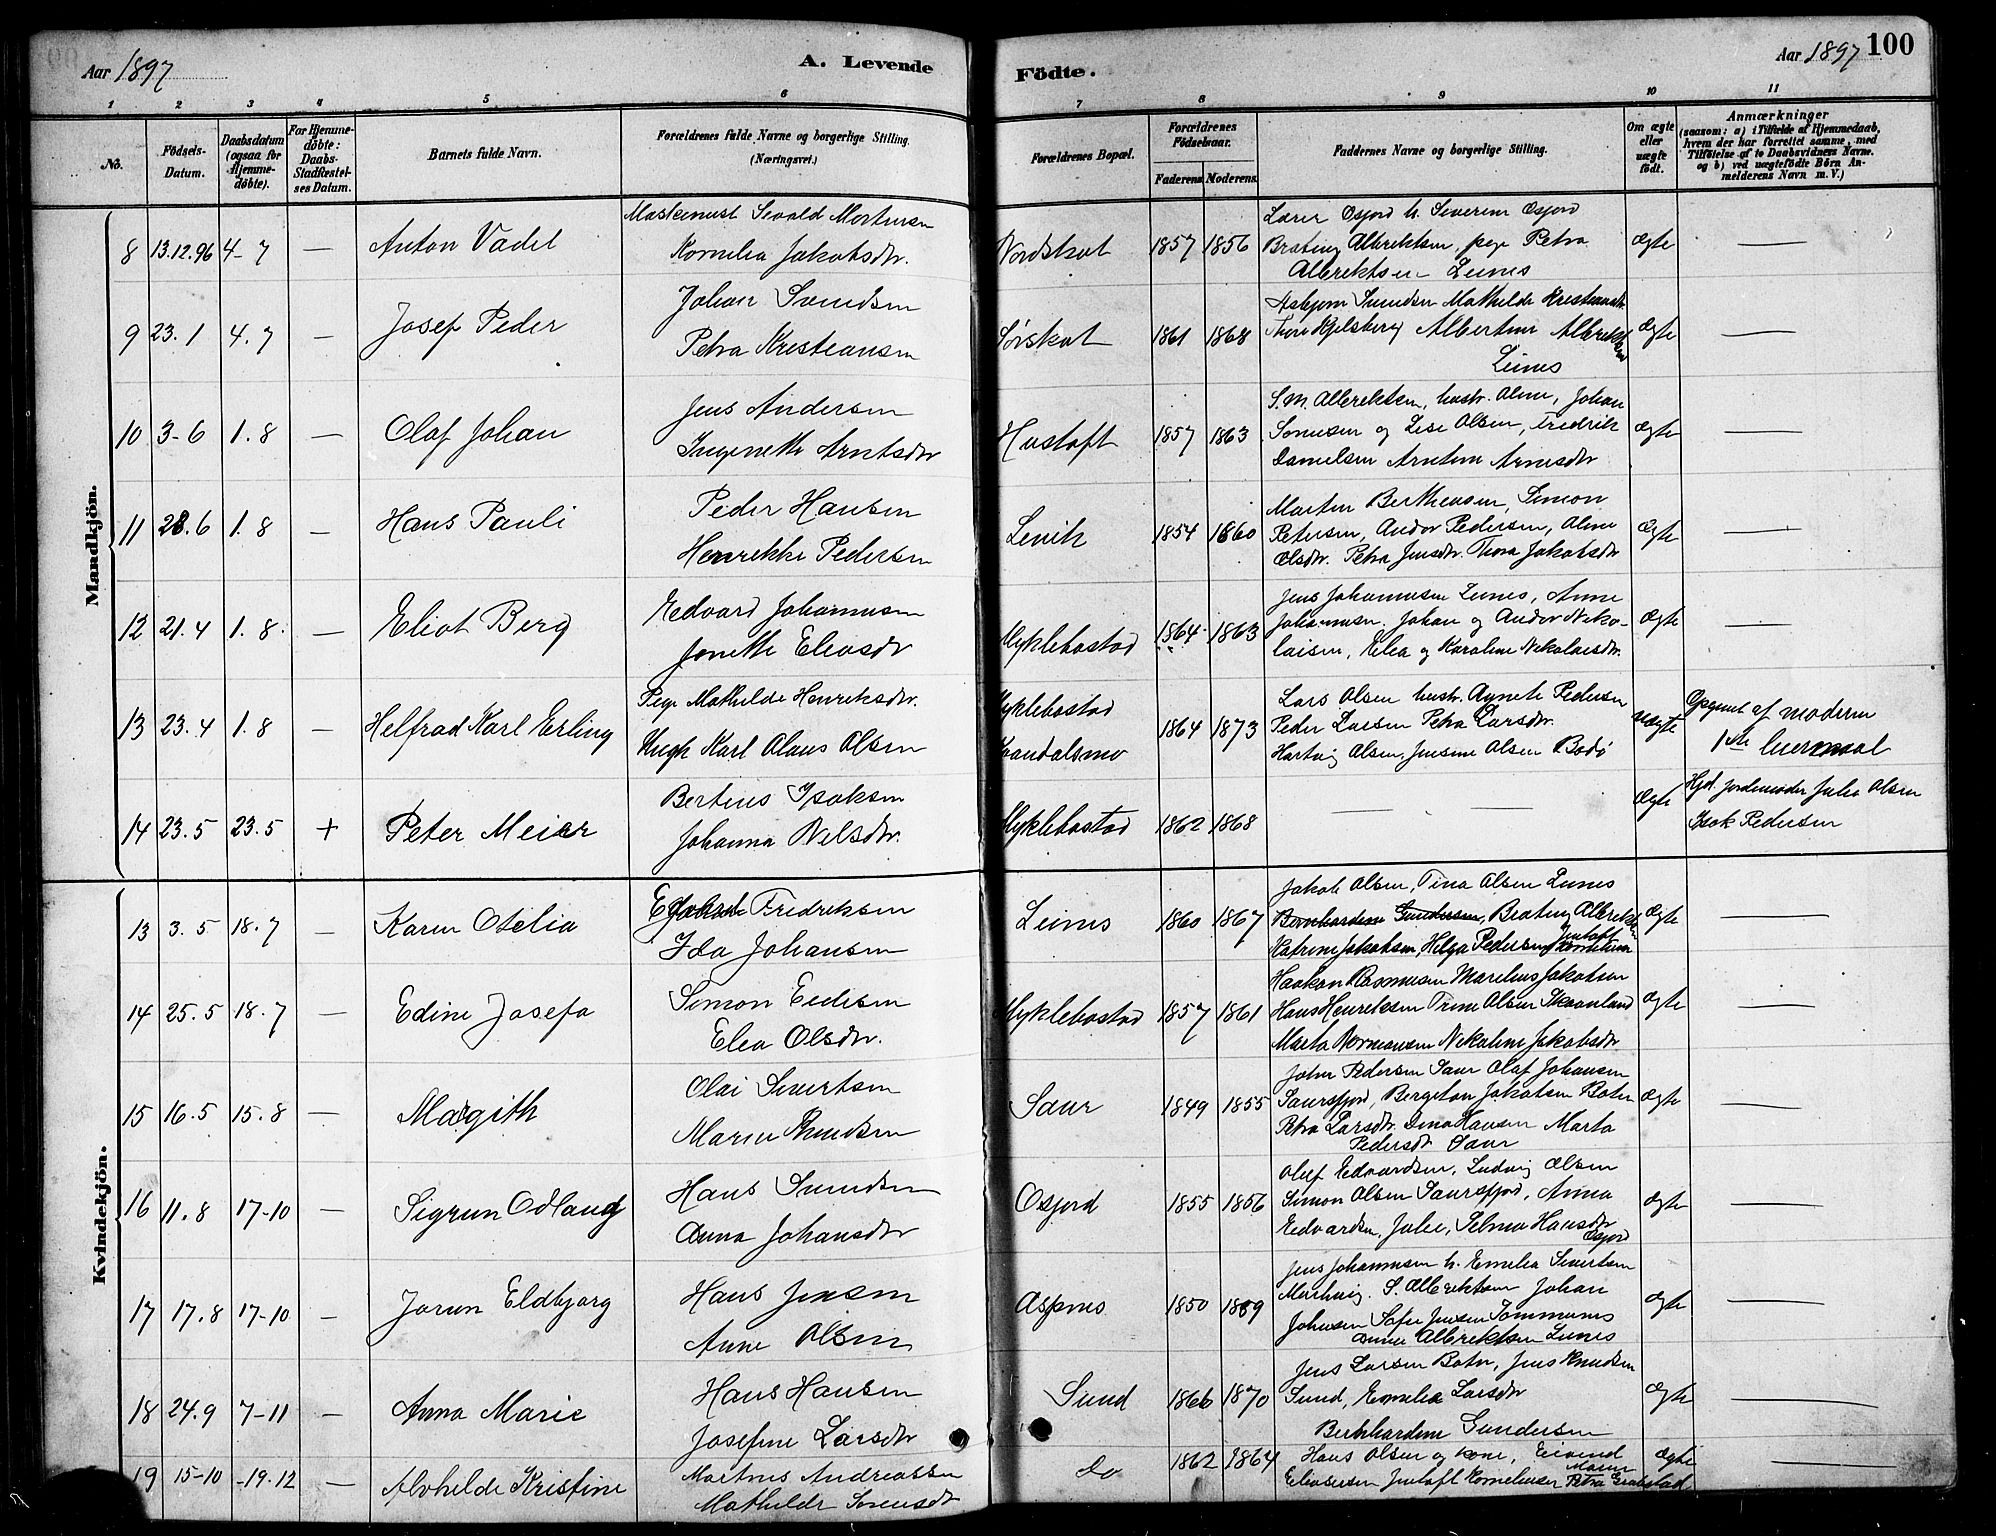 Aar 1897
A. Levende
Födte.
Aar 1897
100
1 2 3 4 5 6 7 8 9 10 11
No.
Födsels-Datum.
Daabsdatum (ogsaa for Hjemme-döbte).
For Hjemme-döbte: Daabs-Stadfæstel-ses Datum.
Barnets fulde Navn.
Forældrenes fulde Navne og borgerlige Stilling. (Næringsvei.)
Forældrenes Bopæl.
Forældrenes Födselsaar.
Faderens Moderens
Faddernes Navne og borgerlige Stilling.
Om ægte eller uægte födt.
Anmærkninger
(saasom: a) i Tilfælde af Hjemmedaab, hvem der har forrettet samme, med Tilföielse af to Daabsvidners Navne. og b) ved uægtefödte Börn An-melderens Navn m. V.)
Mandkjön.
8 13.12.96 4-7 — Anton Vadel
Sevald Mortensen
Kornelia Jakobsdtr.
Nordskot 1857 1856
Lærer Osfjord h. Severine Osfjord
Albriktsen, pige Petra
Albriktsen Leines
ægte —
9 23.1 4.7 — Josef Peder
Johan Svendsen
Petra Kristiansen
Sörskot 1861 1868
Asbjörn Svendsen Mathilde
Albertine Albriktsen
Leines
ægte —
10 3-6 1.8 — Olaf Johan
Jens Andersen
Ingenette Arntsdtr
Hustoft 1857 1863
S.M. Albriktsen, hustr. Aline, Johan
og Lise Olsen, Fredrik
Danielsen
ægte —
11 28.6 1.8 — Hans Pauli
Peder Hansen
Henrikke Pedersen
Lenvik 1854 1860
Martin Berthensen, Simon
Petersen, Andor Pedersen, Aline
Olsdtr. Petra Jensdtr. Thora Jakobsdtr
ægte —
12 21.4 1.8. — Eliot Berg
Edvard Johannesen
Jonette Eliasdtr
Myklebostad 1864 1863
Jens Johannesen Leines, Anne
Johannesen. Johan og Andor Niko-
laisen, Elea og Karoline Nikolaisdtr.
ægte —
13 23.4 1.8 — Helfrad Karl Erling
Pige Mathilde Henriksdtr.
Ungk Karl Olaus Olsen
Myklebostad
1864 1873
Lars Olsen hustr. Agnete Pedersen
Peder Larsen Petra Larsdtr.
Hartvig Olsen, Jensine Olsen Bodö
uægte
Opgivet af moderen
1ste leiermaal
14 23.5 23.5 + Peter Meier
Bertius Isaksen
Johanna Nilsdtr.
Myklebostad 1862 1868
— —
ægte
Hjd. jordemoder Julie Olsen
Isak Pedersen
Kvindekjön.
13 3.5 18.7 — Karen Otelia
Fredriksen
Ida Johansen
Leines 1860 1867
Jakob Olsen, Tina Olsen Leines
Bernhardine Gundersen, Albriktsen
Katrine Jakobsen, Helga Pedersen
ægte —
14 25.5 18.7 — Edine Josefa
Simon Edisen
Elea Olsdtr.
Myklebostad 1857 1861
Haakon Rasmussen Marelius Jakobsen
Hans Henriksen Trine Olsen Skaanland
Marta Normansen Nikoline Jakobsdtr
ægte —
15 16.5 15.8 — Margith
Olai Sivertsen
Maren Knudsen
Saur 1849 1855
John Pedersen Saur Olaf Johansen
Saursfjord, Bergiton Jakobsen Boten
Petra Larsdtr. Dina Hansen Marta
Pedersdtr Saur
ægte —
16 11.8 17-10 — Sigrun Odlaug
Hans Svendsen
Anna Johansdtr
Osfjord 1855 1856
Oluf Edvardsen, Ludvig Olsen
Simon Olsen Saursfjord, Anna
Edvardsen, Julie, Selma Hansdtr
Osfjord
ægte —
17 17.8 17-10 — Jorun Eldbjorg
Hans Jensen
Anne Olsen
Aspnes 1850 1859
Jens Johannesen h. Emelia Sivertsen
S. Albriktsen Johan
Johnsen Jensen Tommernes
Albriktsen Leines
ægte —
18 24.9 7-11 — Anna Marie
Hans Hansen
Josefine Larsdtr
Sund 1866 1870
Jens Larsen Botn, Jens Knudsen
Sund, Emelie Larsdtr
Bernhardine Gundersen
ægte —
19 15-10 -19.12 — Alvhilde Kristine
Martinus Andreassen
Mathilde Sörensdtr
do 1862 1864
Hans Olsen og kone, Eivind
Eliasersen Justaft Korneliusen Petra Grøtstad
ægte —